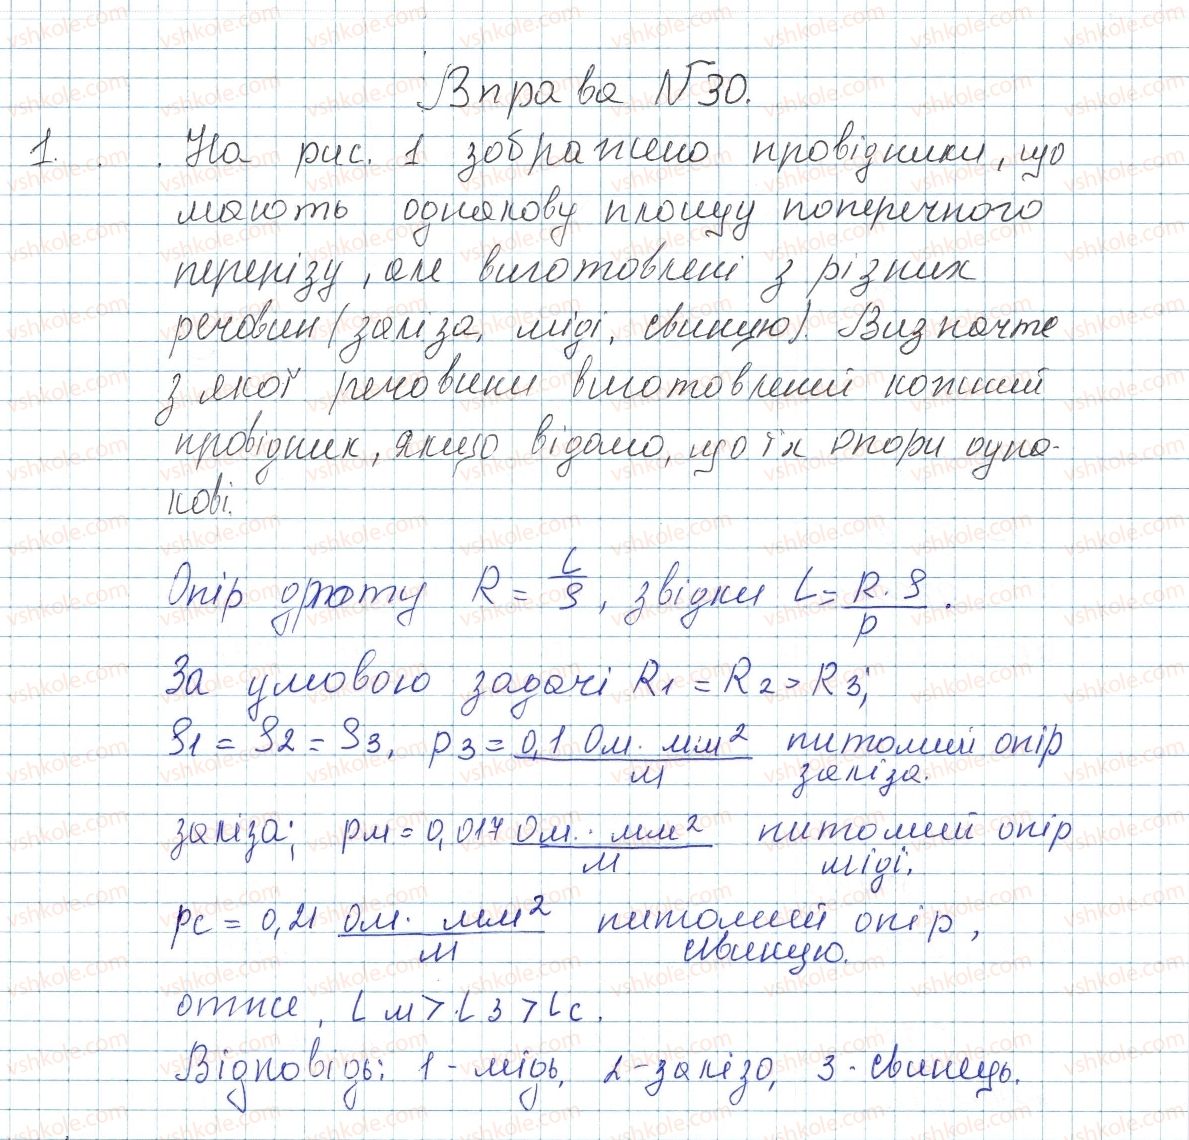 Вправа №30.
1. На рис. 1 зображено провідники, що
мають однакову площу поперечного
перерізу, але виготовлені з різних
речовин (заліза, міді, свинцю). Визначте
з якої речовини виготовлений кожний
провідник, якщо відомо, що їх опори одна-
кові.
Опір дроту R = L/S, звідки L = R·S/ρ.
За умовою задачі R1 = R2 > R3;
S1 = S2 = S3, ρз = 0,1 Ом·мм²/м питомий опір
заліза.
заліза; ρм = 0,017 Ом·мм²/м питомий опір
міді.
ρс = 0,21 Ом·мм²/м питомий опір,
свинцю.
отже, Lм > Lз > Lс.
Відповідь: 1 - мідь, 2 - залізо, 3 - свинець.
vshkole.com